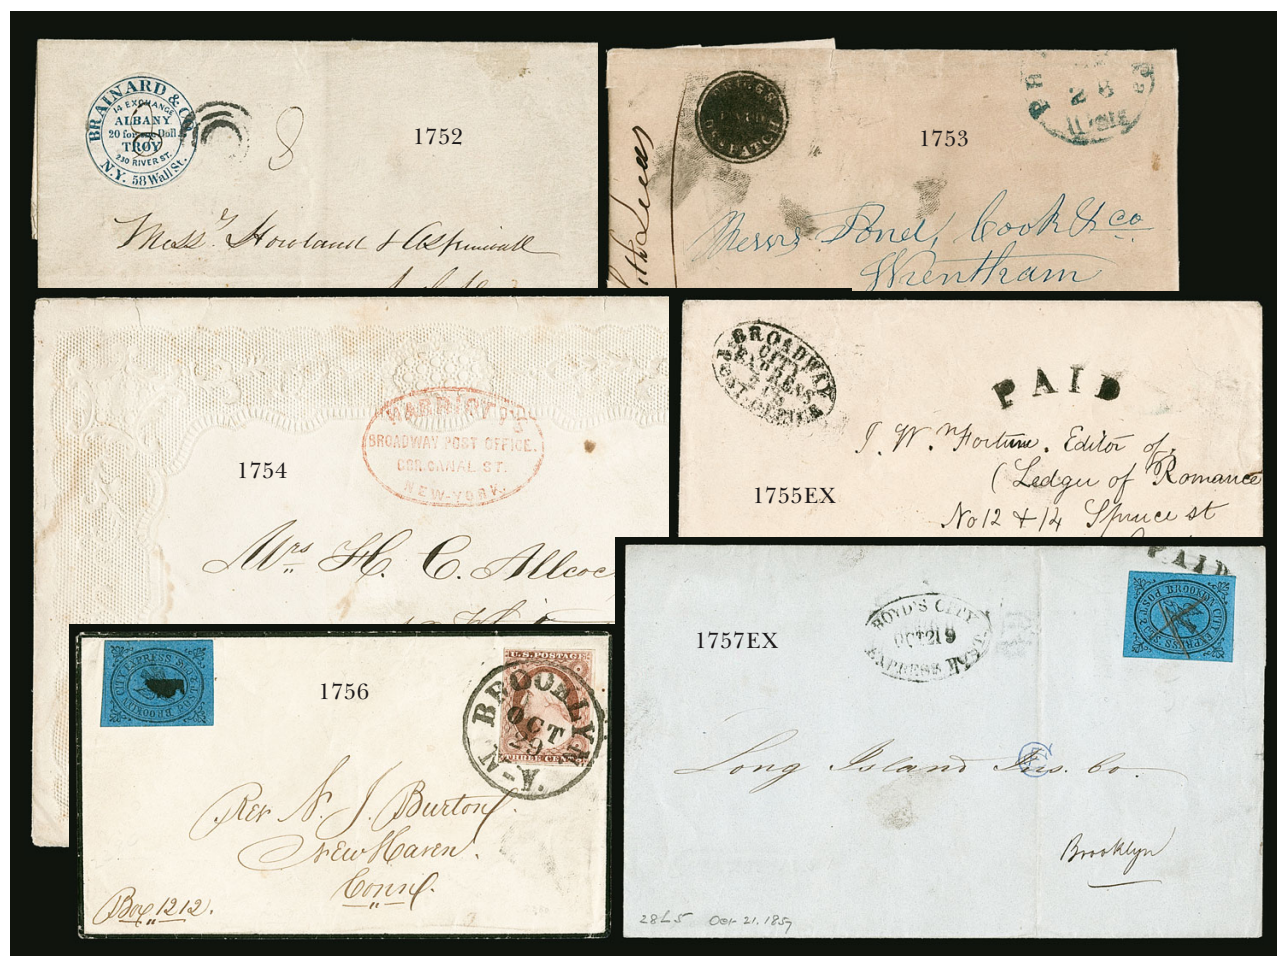 BRAINARD & CO.
14 EXCHANGE
ALBANY
20 for one Doll.
TROY
230 RIVER ST.
N.Y. 58 Wall St.
8
1752
Messrs. Howland & Aspinwall
PAID
DISPATCH
28
1753
Messrs Pond, Cook & Co.
Wrentham
1754
BROADWAY POST OFFICE.
COR. CANAL ST.
NEW-YORK.
Mrs H. C. Allcoc
BROADWAY
CITY
EXPRESS
POST OFFICE
PAID
J. W. Fortune, Editor of
(Ledger of Romance
No 12 & 14 Spruce st
1755EX
BROOKLYN CITY EXPRESS POST
1756
U.S. POSTAGE
THREE CEN
BROOKLYN
OCT
29
N-Y.
Rev N. J. Burton,
New Haven.
Conn.
Box 1212.
1757EX
BOYD'S CITY
OCT 21 9
EXPRESS POST.
PAID
BROOKLYN CITY EXPRESS POST
Long Island Ins. Co.
Brooklyn
28L5 Oct. 21. 1857